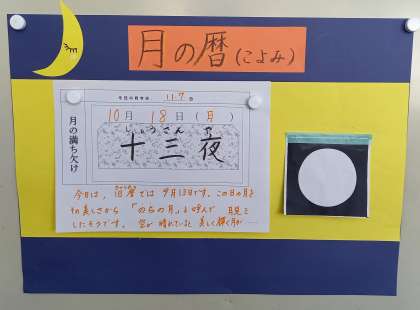 月の暦(こよみ)
今日の月齢は、11.7日
10月18日(月)
じゅうさんや
十三夜
月の満ち欠け
今日は、旧暦では9月13日です。この日の月を
その美しさから「のちの月」と呼んで
したそうです。空が晴れていると美しく輝く月が……